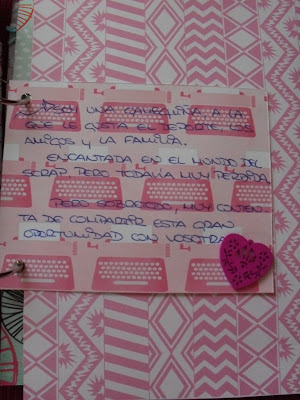 SOY UNA GADITANITA A LA
QUE LE GUSTA EL DEPORTE, LOS
AMIGOS Y LA FAMILIA.
ENCANTADA EN EL MUNDO DEL
SCRAP PERO TODAVÍA MUY PERDIDA.
PERO SOBRETODO, MUY CONTEN-
TA DE COMPARTIR ESTA GRAN
OPORTUNIDAD CON VOSOTRAS